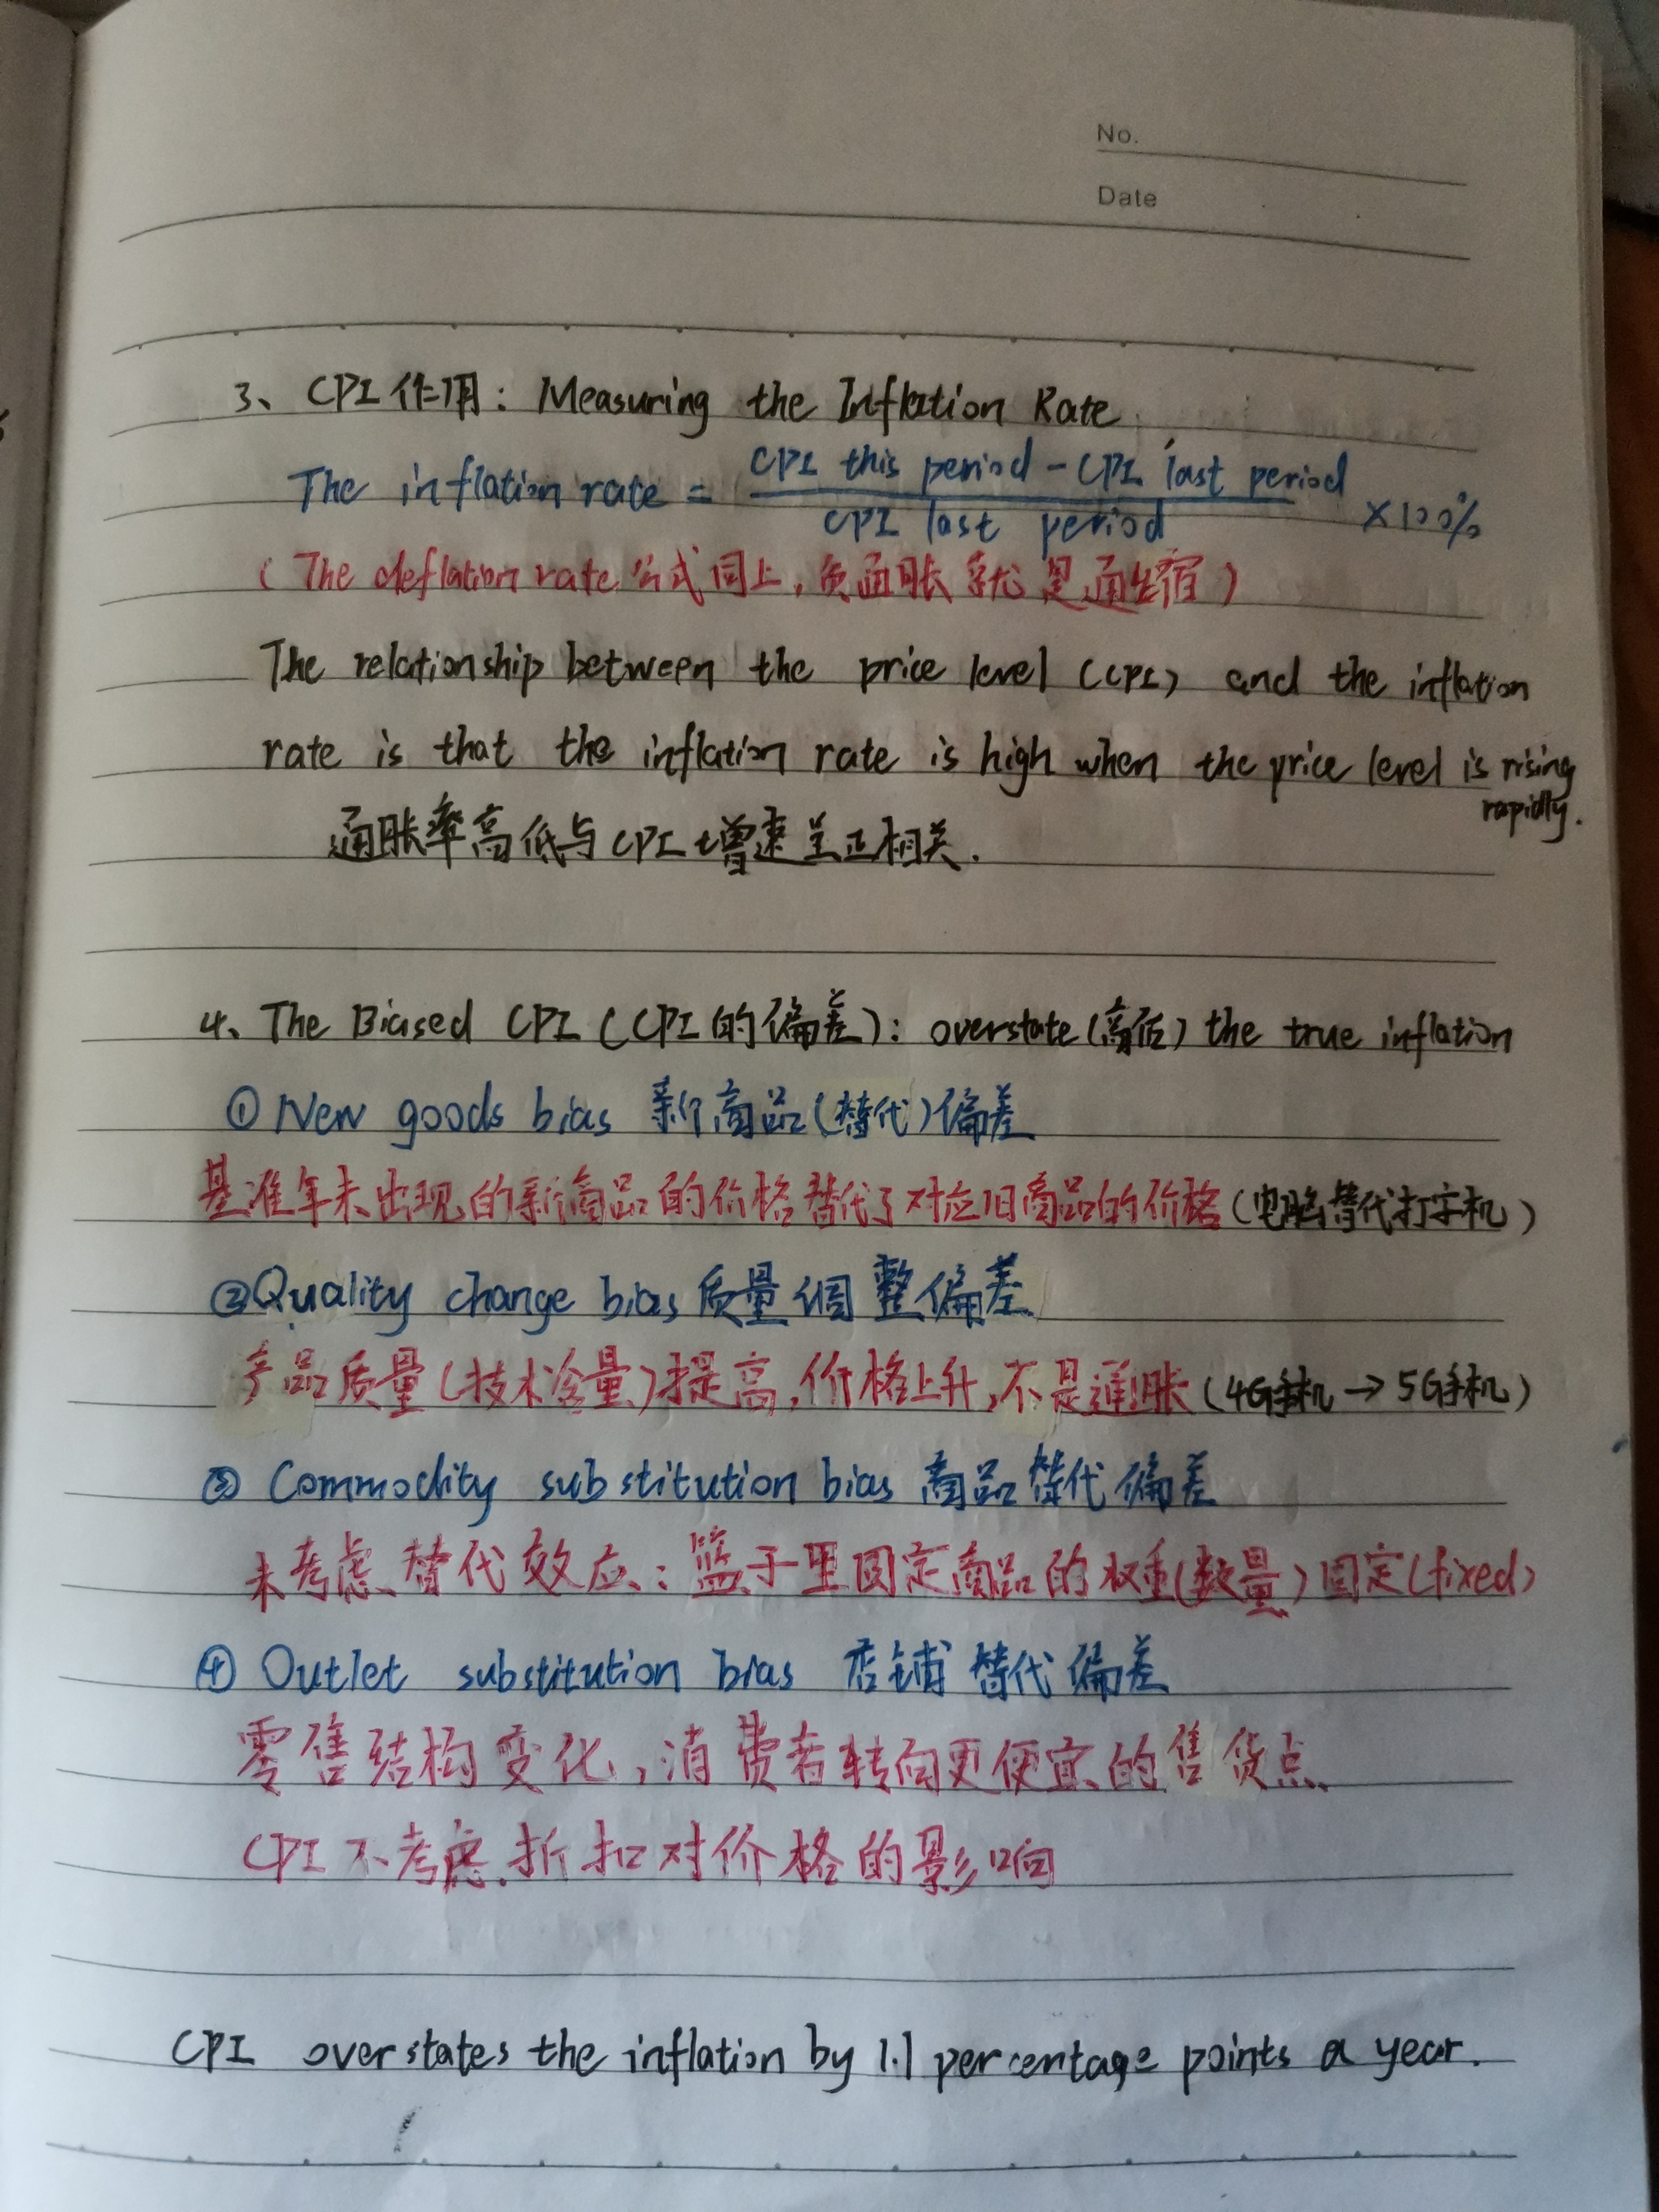 No.
Date
3、CPI作用：Measuring the Inflation Rate
The inflation rate = (CPI this period - CPI last period) / CPI last period ×100%
(The deflation rate 公式同上，负通胀就是通缩)
The relationship between the price level (CPI) and the inflation
rate is that the inflation rate is high when the price level is rising
rapidly.
通胀率高低与CPI增速呈正相关.
4、The Biased CPI (CPI的偏差): overstate(高估) the true inflation
① New goods bias 新商品(替代)偏差
基准年未出现的新商品的价格替代了对应旧商品的价格(电脑替代打字机)
②Quality change bias 质量调整偏差
产品质量(技术含量)提高,价格上升,不是通胀(4G手机→5G手机)
③ Commodity substitution bias 商品替代偏差
未考虑替代效应：篮子里固定商品的权重(数量)固定(fixed)
④ Outlet substitution bias 店铺替代偏差
零售结构变化,消费者转向更便宜的售货点
CPI不考虑折扣对价格的影响
CPI overstates the inflation by 1.1 percentage points a year.